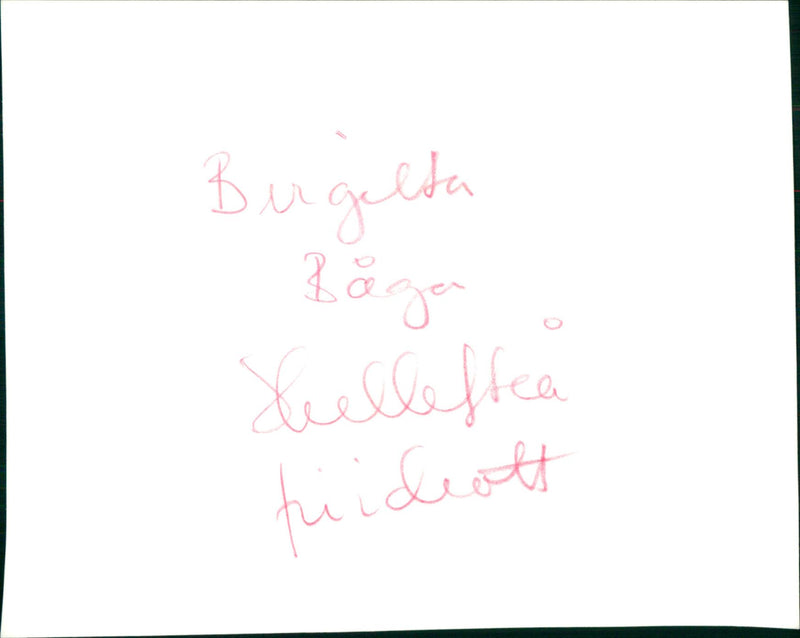 Birgitta
Båga
Skellefteå
friidrott